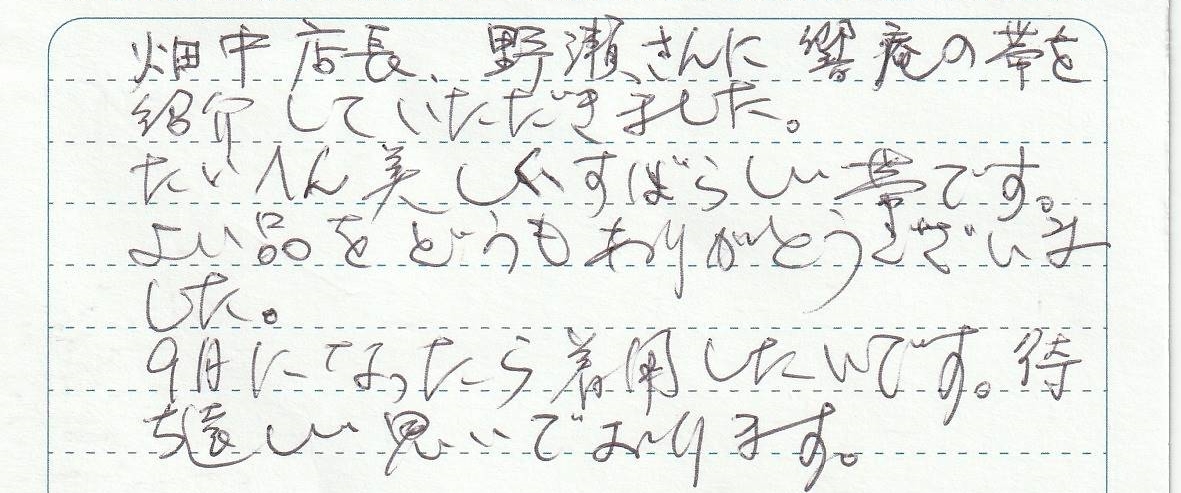 畑中店長、野瀬さんに響庵の帯を
紹介していただきました。
たいへん美しくすばらしい帯です。
よい品をどうもありがとうございま
した。
9月になったら着用したいです。待
ち遠しい思いでおります。